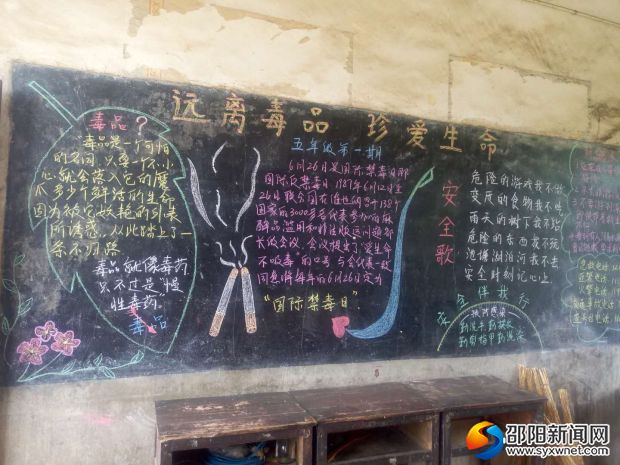 远离毒品 珍爱生命
毒品？
"毒品是一个可怕
的名词,只要一不小
心就会落入它的魔
爪,多少个鲜活的生命
因为被它妖艳的外表
所诱惑..从此踏上了一
条不归路.
毒品就像毒药
只不过是"慢
性毒药".
毒品
五年级第一期
6月26日是国际禁毒日即
国际反禁毒日1987年6月12日至
26日联合国在维也纳
国家的3000多名代表参加的麻
醉品滥用和非法贩运问题部
长级会议,会议提出了"爱生命
不吸毒"的口号与会代表一致
同意将每年的6月26日定为
"国际禁毒日"
安全歌
危险的游戏我不做
变质的食物我不吃
雨天的树下我不站
危险的东西我不玩
池塘湖泊河我不去
安全时刻记心上
安全伴我行
预防感染
勤洗手勤换衣
勤剪指甲勤洗澡
急救电话
火警电话
邵阳新闻网
www.syxwnet.com